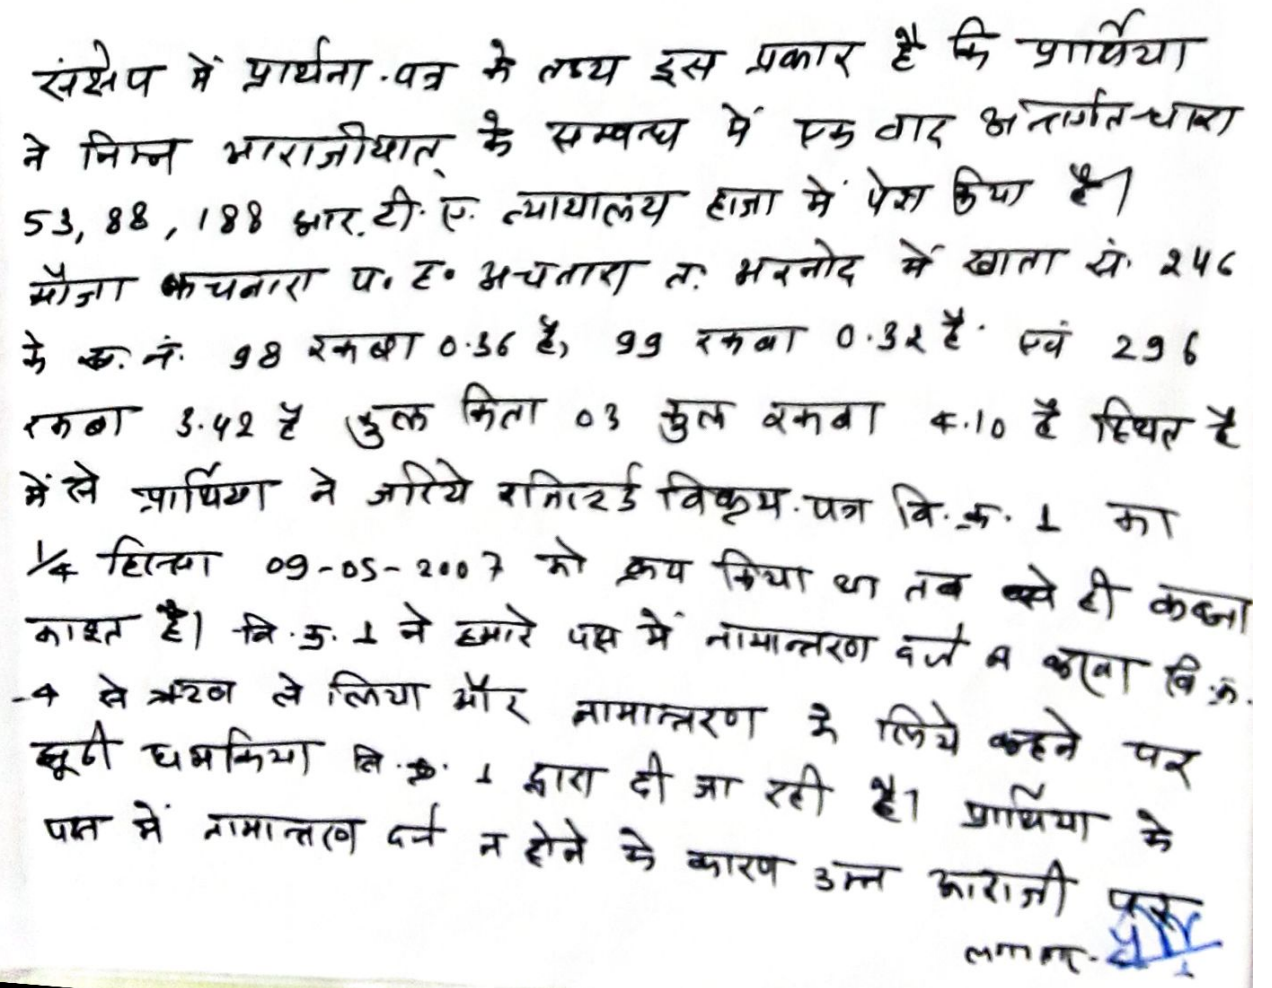 संक्षेप में प्रार्थना-पत्र के तथ्य इस प्रकार है कि प्रार्थिया
ने निम्न आराजीयात् के सम्बन्ध में एक वाद अन्तर्गत धारा
53, 88, 188 आर.टी.ए. न्यायालय हाजा में पेश किया है।
मौजा कचनारा प. ह. अचनारा त. अरनोद में खाता सं. 246
के ख. नं. 98 रकबा 0.36 है, 99 रकबा 0.32 है. एवं 296
रकबा 3.42 है कुल किता 03 कुल रकबा 4.10 है स्थित है
में से प्रार्थिया ने जरिये रजिस्टर्ड विक्रय-पत्र वि.क्र. 1 का
1/4 हिस्सा 09-05-2007 को क्रय किया था तब से ही कब्जा
काश्त है। वि.क्र. 1 ने हमारे पक्ष में नामान्तरण दर्ज न करवा वि.क्र.
-4 से ऋण ले लिया और नामान्तरण के लिये कहने पर
झूठी धमकिया वि.क्र. 1 द्वारा दी जा रही है। प्रार्थिया के
पक्ष में नामान्तरण दर्ज न होने के कारण उक्त आराजी पर
लगातार-